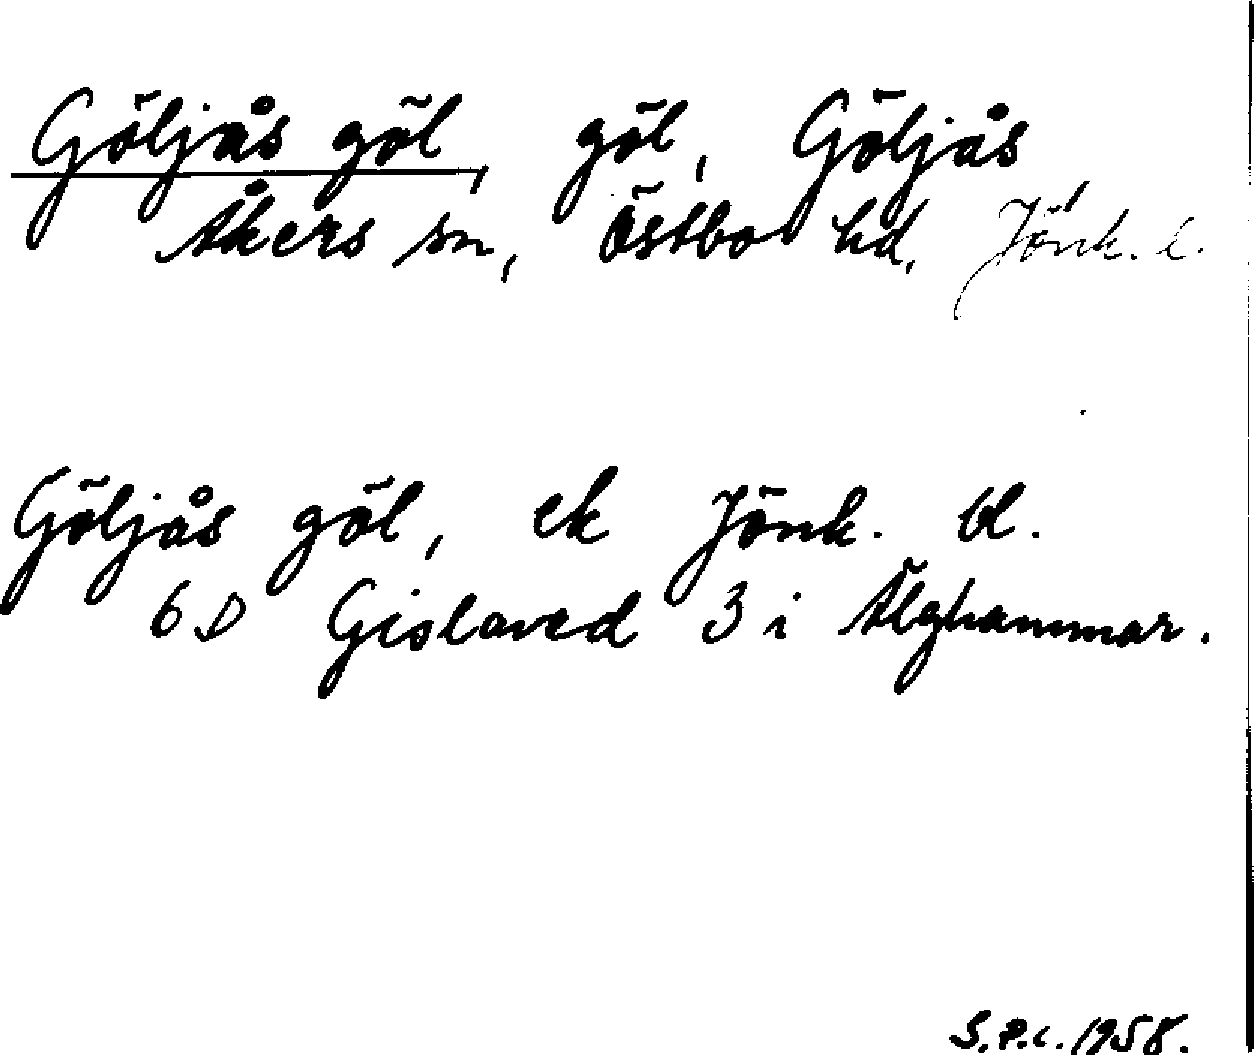 Göljås göl, göl, Göljås
Åkers sn, Östbo hd, Jönk. l.
Göljås göl, ek Jönk. bl.
6D Gislaved 3 i Älghammar.
S.P.C. 1958.